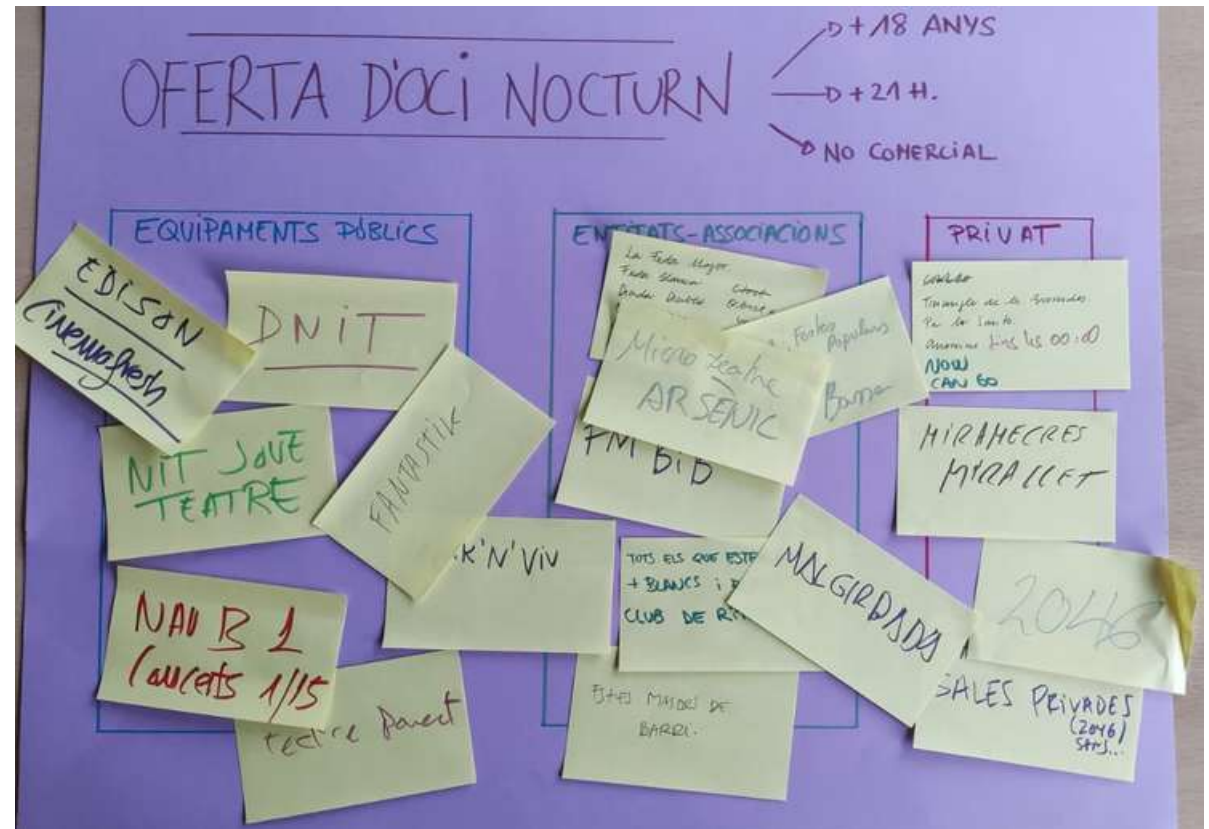 OFERTA D'OCI NOCTURN
+18 ANYS
+21 H.
NO COMERCIAL
EQUIPAMENTS PÚBLICS
EDISON
Cinemafresh
DNIT
NIT JOVE
TEATRE
FANTASTIK
K'N'VIV
NAU B1
Concerts 1/15
ENTITATS-ASSOCIACIONS
La Festa Major
Festa
Micro teatre
ARSÈNIC
Festes
Populars
FM BIB
TOTS ELS QUE ESTE
+ BLANCS i
CLUB DE
MALGIRBADA
MAJORS DE
BARRI.
PRIVAT
Triangle de la
fins les 00:00
NOW
CAN 60
MIRAMECRES
MIRALLET
2046
SALES PRIVADES
(2046)